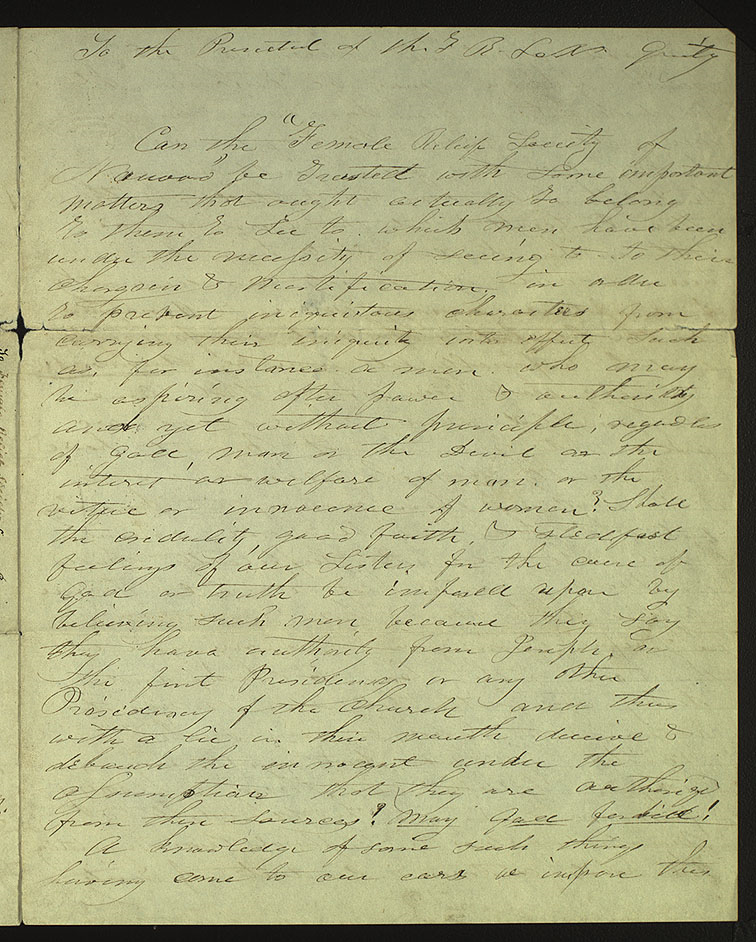 To the President of the F R. Society Greeting
Can the "Female Relief Society of
Nauvoo" be trusted with some important
matters that ought actually to belong
to them to see to. which men have been
under the necessity of seeing to to their
chagrin & Mortification. in order
to prevent iniquitous characters from
carrying their iniquity into effect, Such
as, for instance. a man. who may
be aspiring after power & authority
and yet without principle, regardless
of God, man or the Devil or the
interest or welfare of man. or the
virtue or innocence of women? Shall
the credulity, good faith, & stedfast
feelings of our Sisters for the cause of
God or truth be imposed upon by
believing such men because they say
they have authority from Joseph, or
the first Presidency or any other
Presidency of the Church and thus
with a lie in their mouth deceive &
debauch the innocent under the
assumption that they are authorized
from these sources? May God forbid!
A knowledge of some such things
having come to our ears we improve this